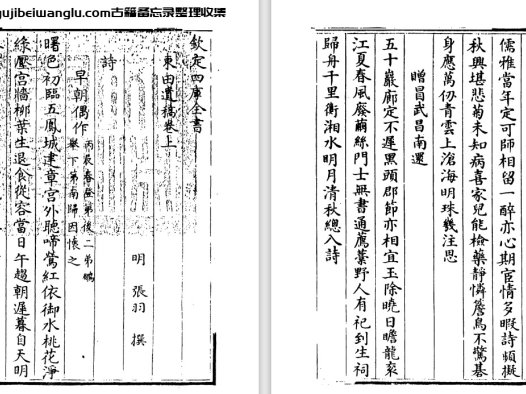 gujibeiwanglu.com古籍备忘录整理收集
儒雅當年定可師相留一醉亦心期宦情多暇詩頻擬
秋興堪悲菊未知病喜家兒能檢藥靜憐簷鳥不驚碁
身應萬仞青雲上滄海明珠幾注思
贈昌武昌南還
五十巖廊定不遲黑頭郡節亦相宜玉除曉日瞻龍袞
江夏春風廢繭絲門士無書通薦藁野人有祀到生祠
歸舟千里衡湘水明月清秋總入詩
欽定四庫全書
東田遺稿卷上
明 張羽 撰
詩
早朝偶作 丙辰春登第後二弟鵬
舉下第南歸因懷之
曙色初臨五鳳城建章宮外聽啼鶯紅依御水桃花淨
綠壓宮牆柳葉生退食從容當日午趨朝遲暮自天明